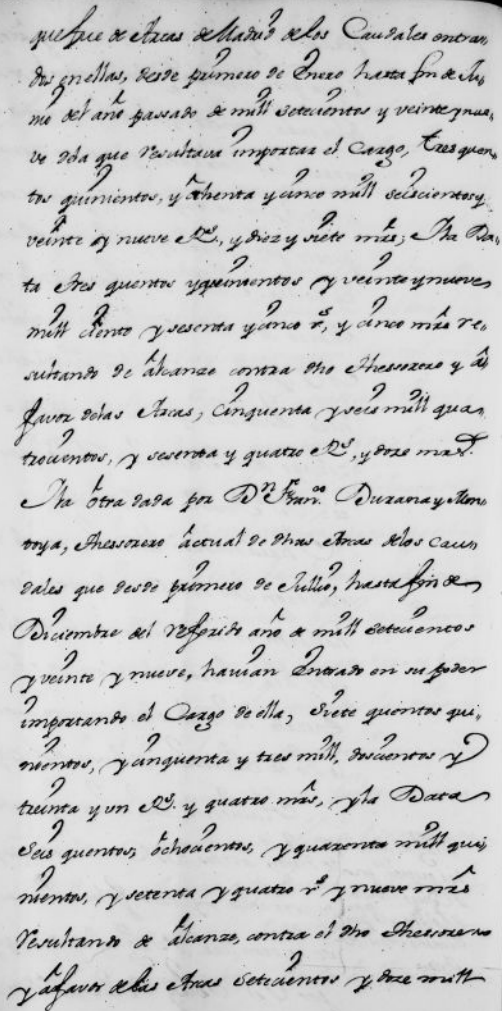 que fue de Arcas de Madrid de los Caudales entra-
dos en ellas, desde primero de Enero hasta fin de Ju-
nio del año passado de mill setecientos y veinte y nue-
ve de la que resultava importar el Cargo, tres quen-
tos quinientos, y ochenta y cinco mill seiscientos y
veinte y nueve Rs., y diez y siete mrs; y la Da-
ta tres quentos y quinientos y veinte y nueve
mill ciento y sesenta y cinco rs, y cinco mrs re-
sultando de alcanze contra dho Thessorero y a
favor de las Arcas, cinquenta y seis mill qua-
trocientos, y sesenta y quatro Rs, y doze mrs.
Y la otra dada por Dn Franco Durana y Mon-
toya, Thessorero actual de dhas Arcas de los Cau-
dales que desde primero de Jullio, hasta fin de
Diciembre del referido año de mill setecientos
y veinte y nueve, havian Entrado en su poder
importando el Cargo de ella, Siete quentos qui-
nientos, y cinquenta y tres mill, doscientos y
treinta y un Rs. y quatro mrs, y la Data
Seis quentos, ochocientos, y quarenta mill qui-
nientos, y setenta y quatro rs y nueve mrs
resultando de alcanze, contra el dho Thessorero
y a favor de las Arcas Setecientos y doze mill